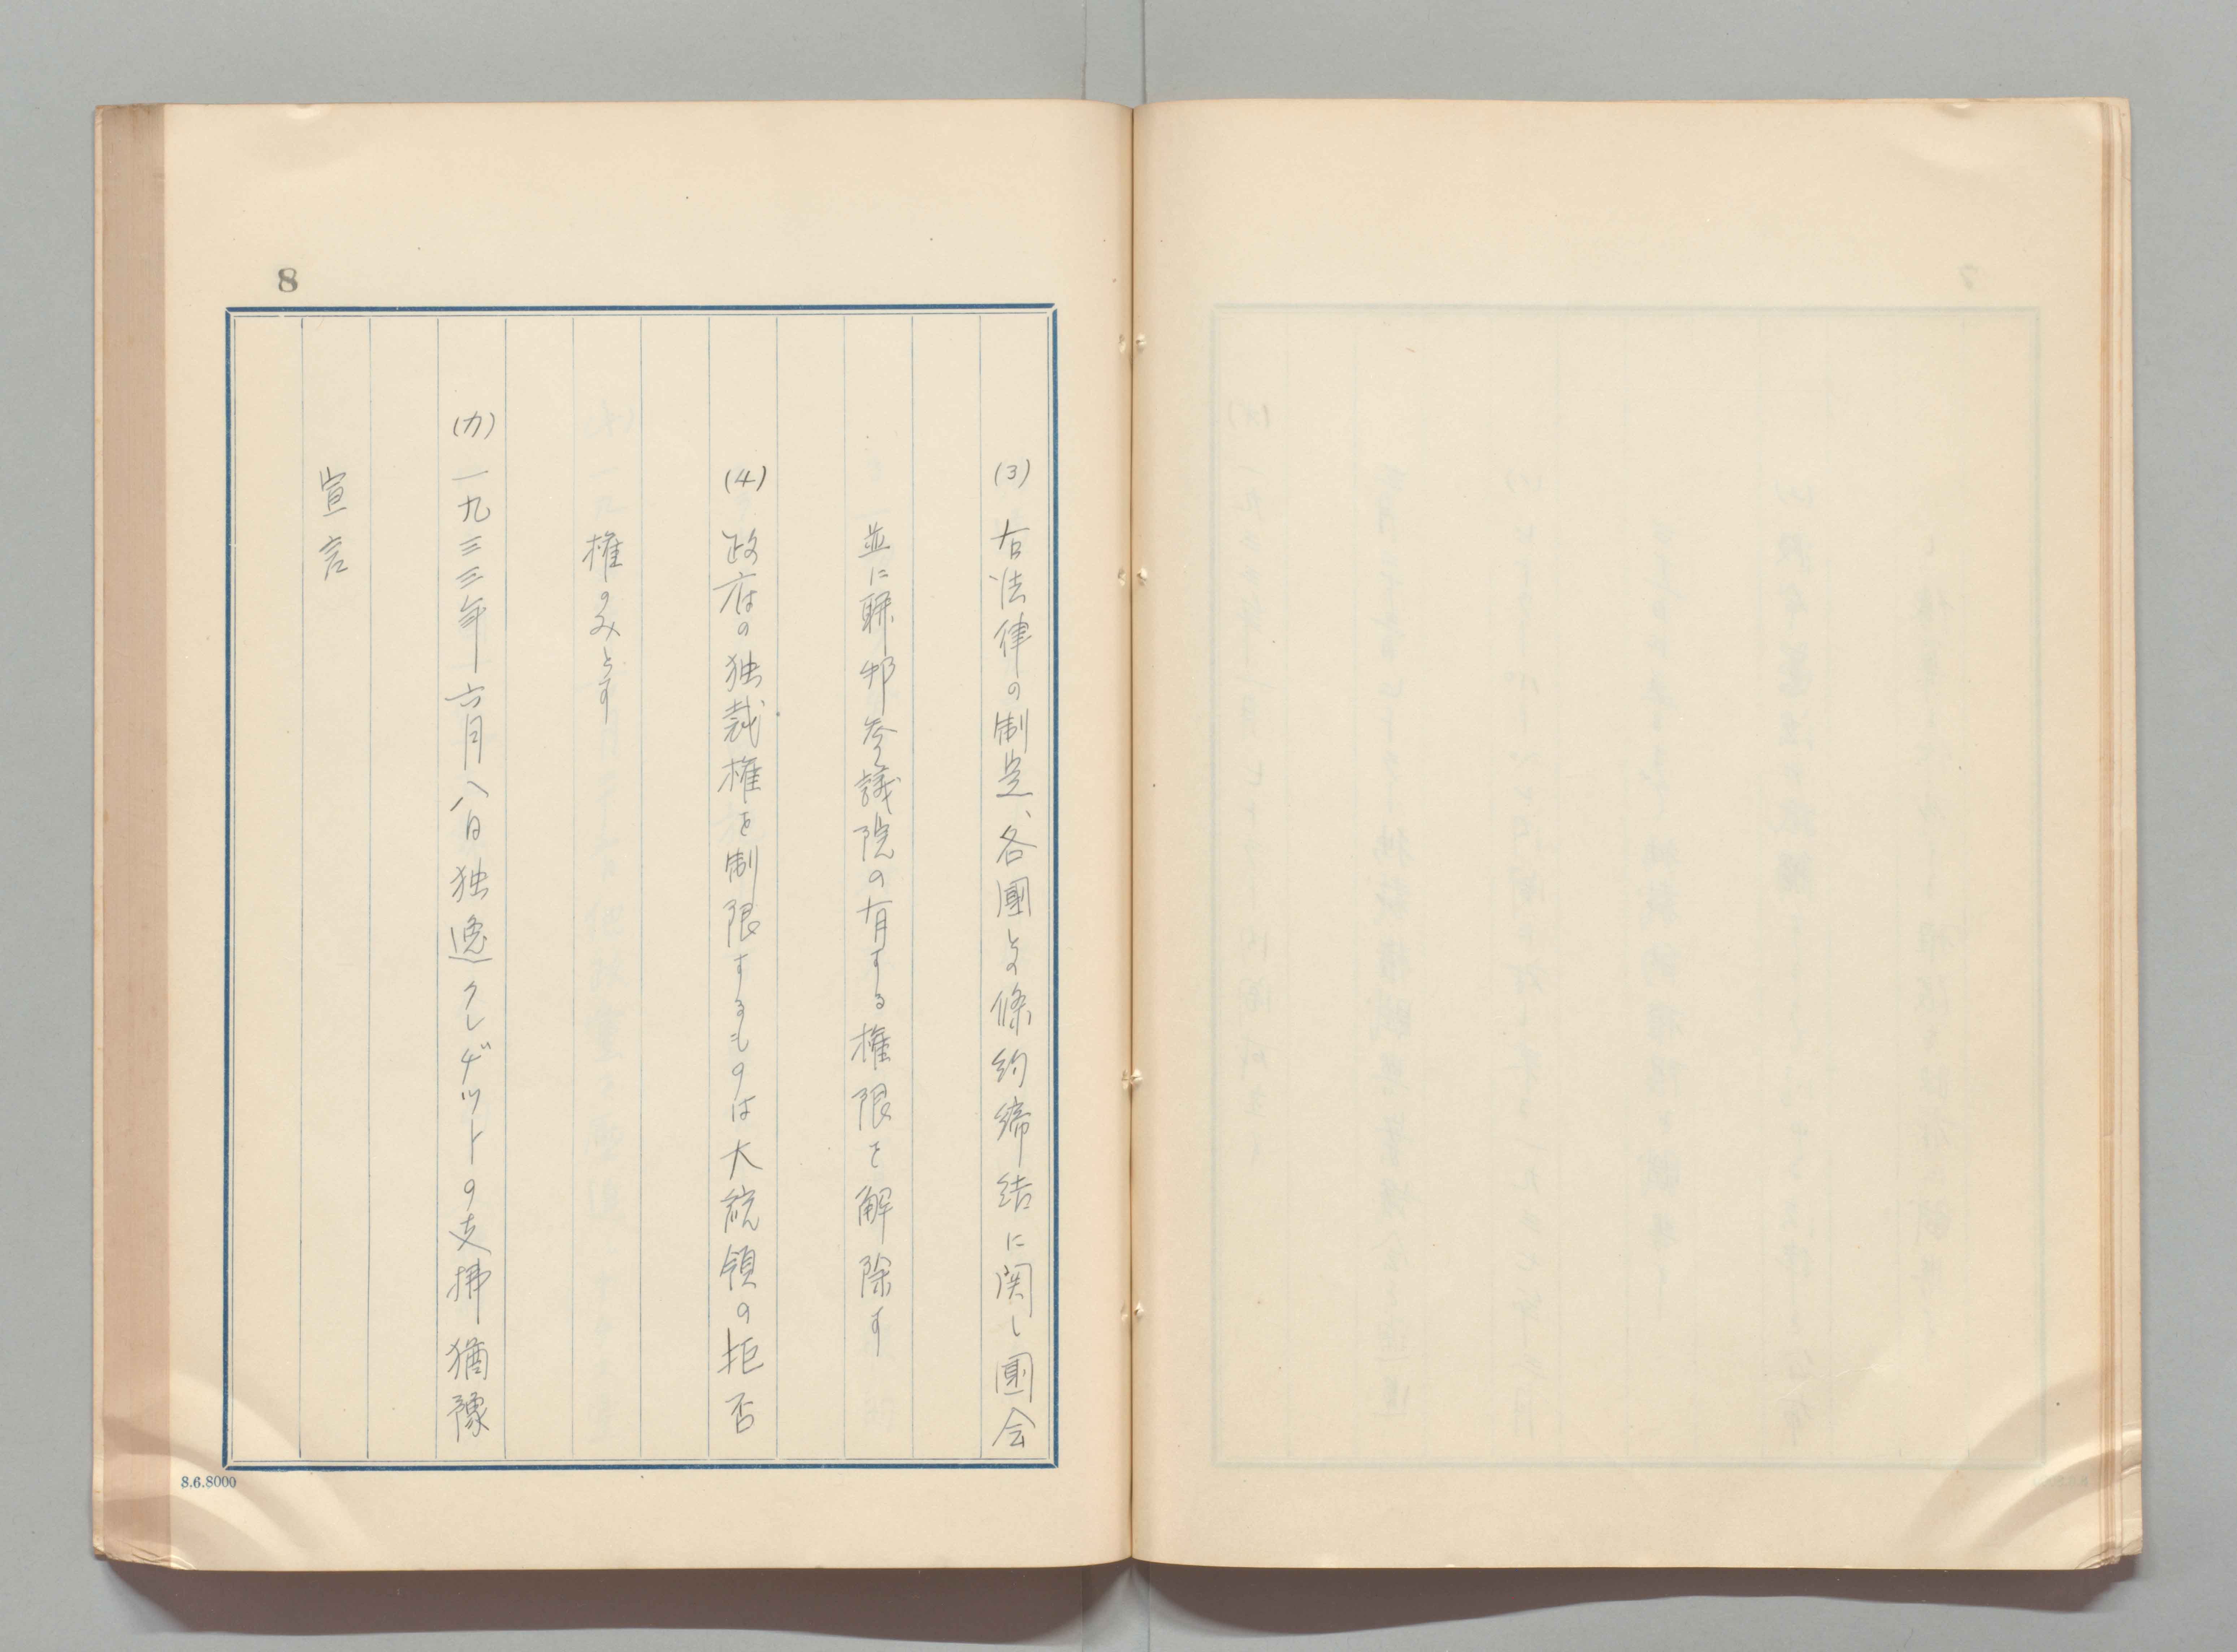 8
(3) 右法律の制定、各國との條約締結に関し國会
並に聯邦参議院の有する権限を解除す
(4) 政府の独裁権を制限するものは大統領の拒否
権のみとす
(カ) 一九三三年六月八日独逸クレヂットの支拂猶豫
宣言
8.6.8000